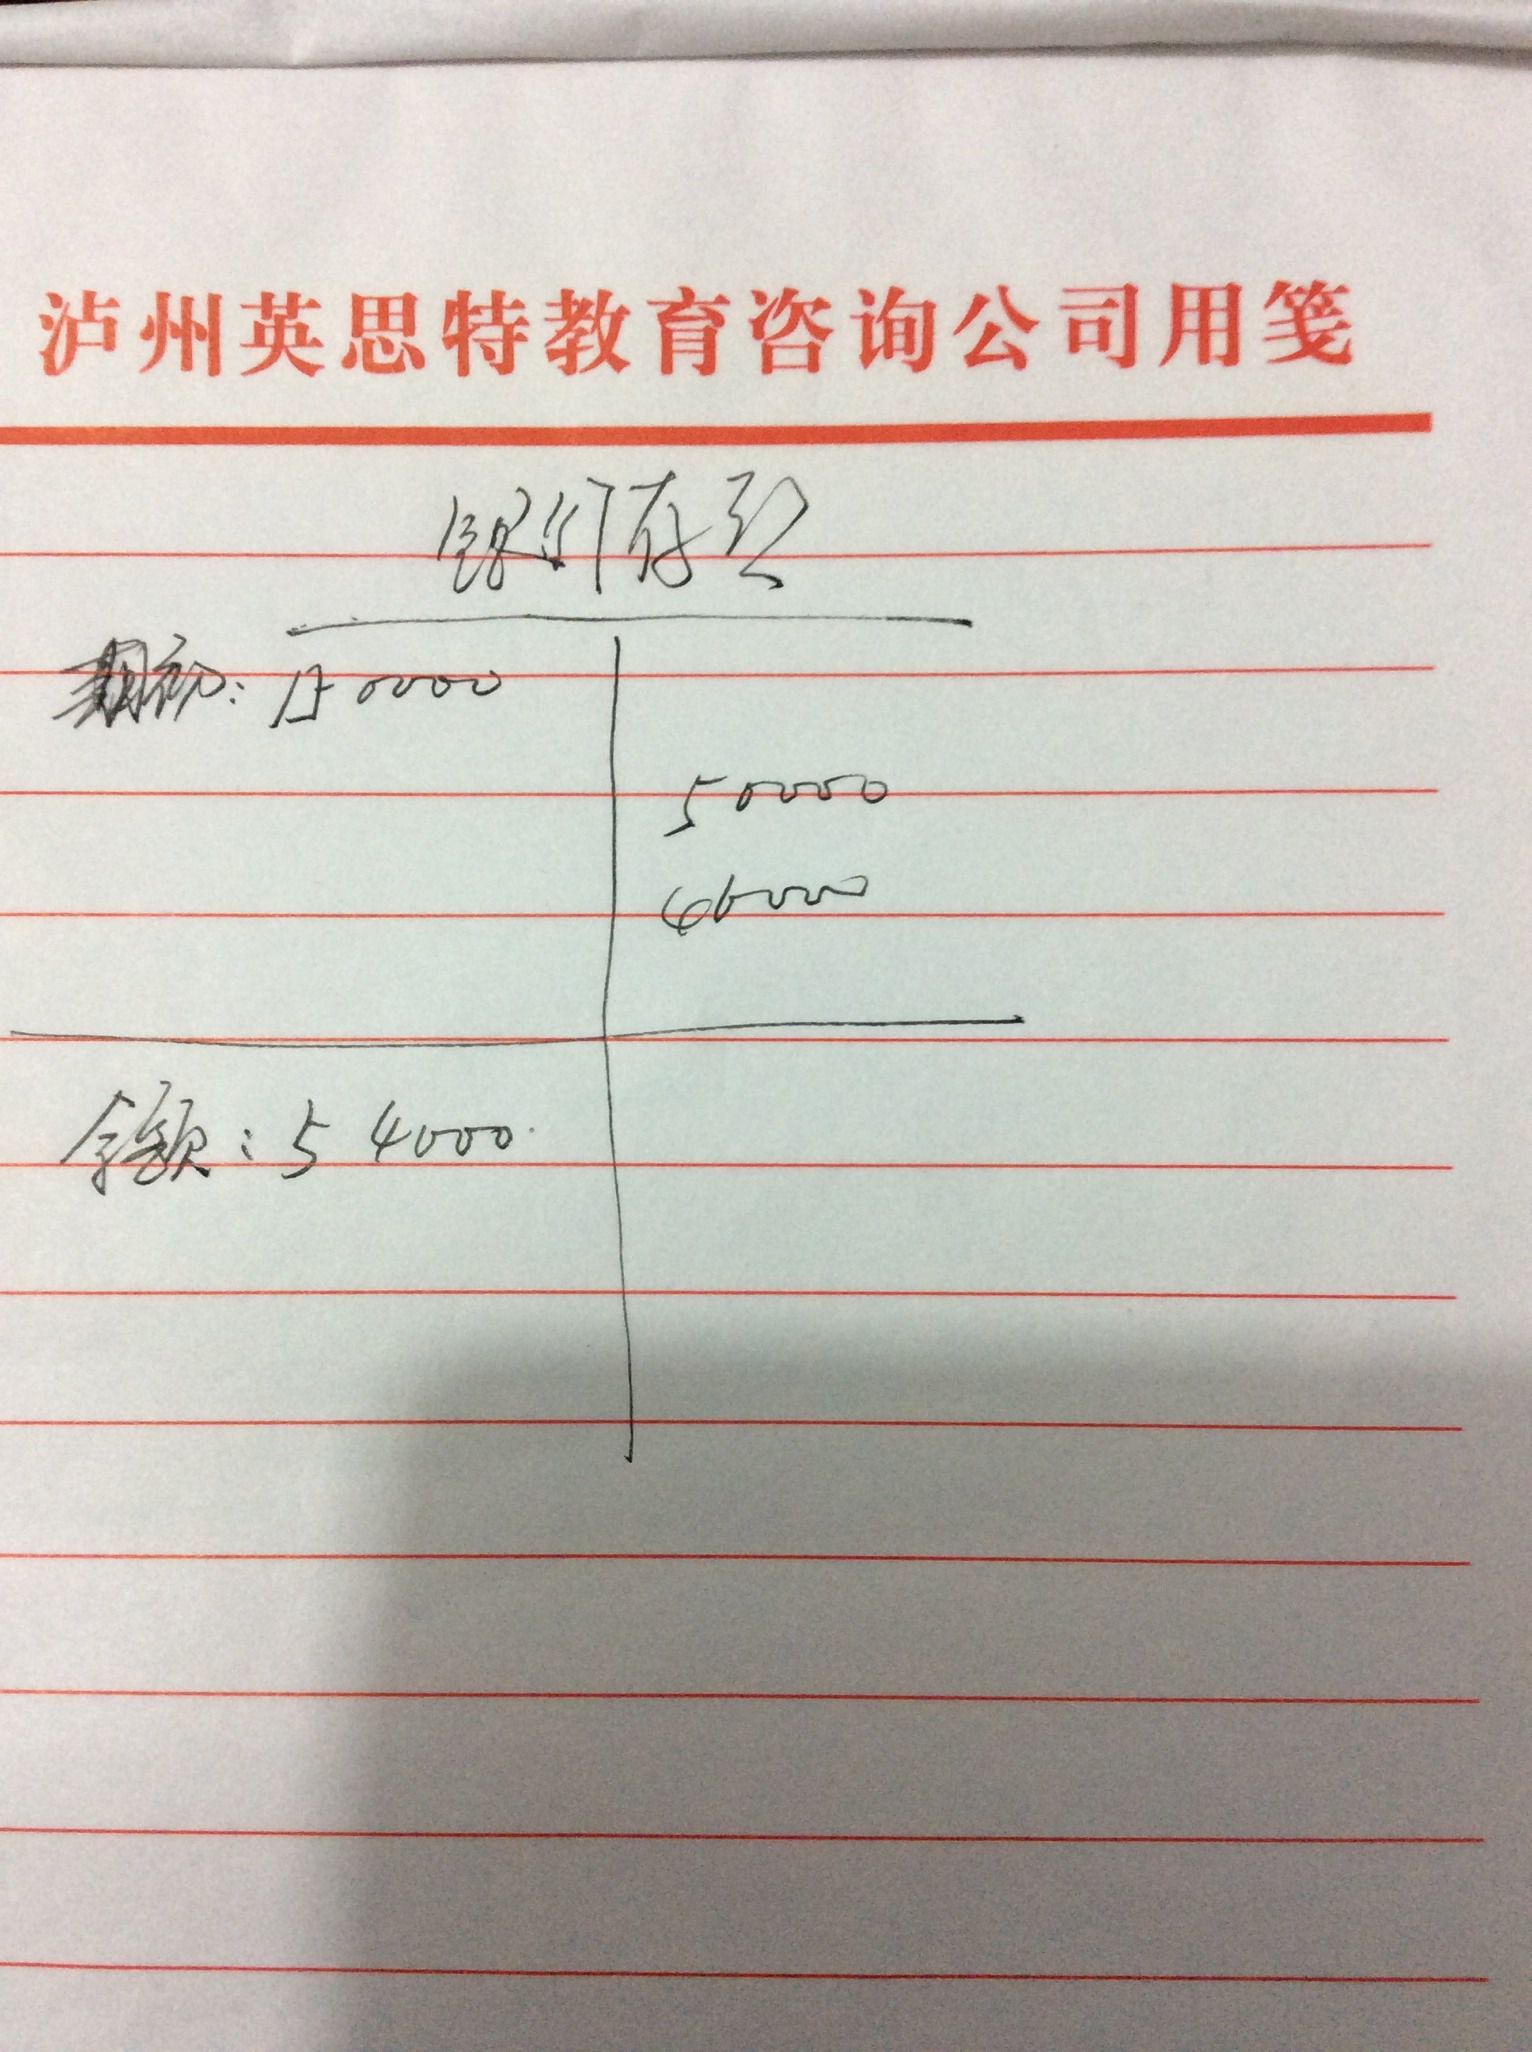 泸州英思特教育咨询公司用笺
银行存款
期初: 150000
50000
46000
余额: 54000